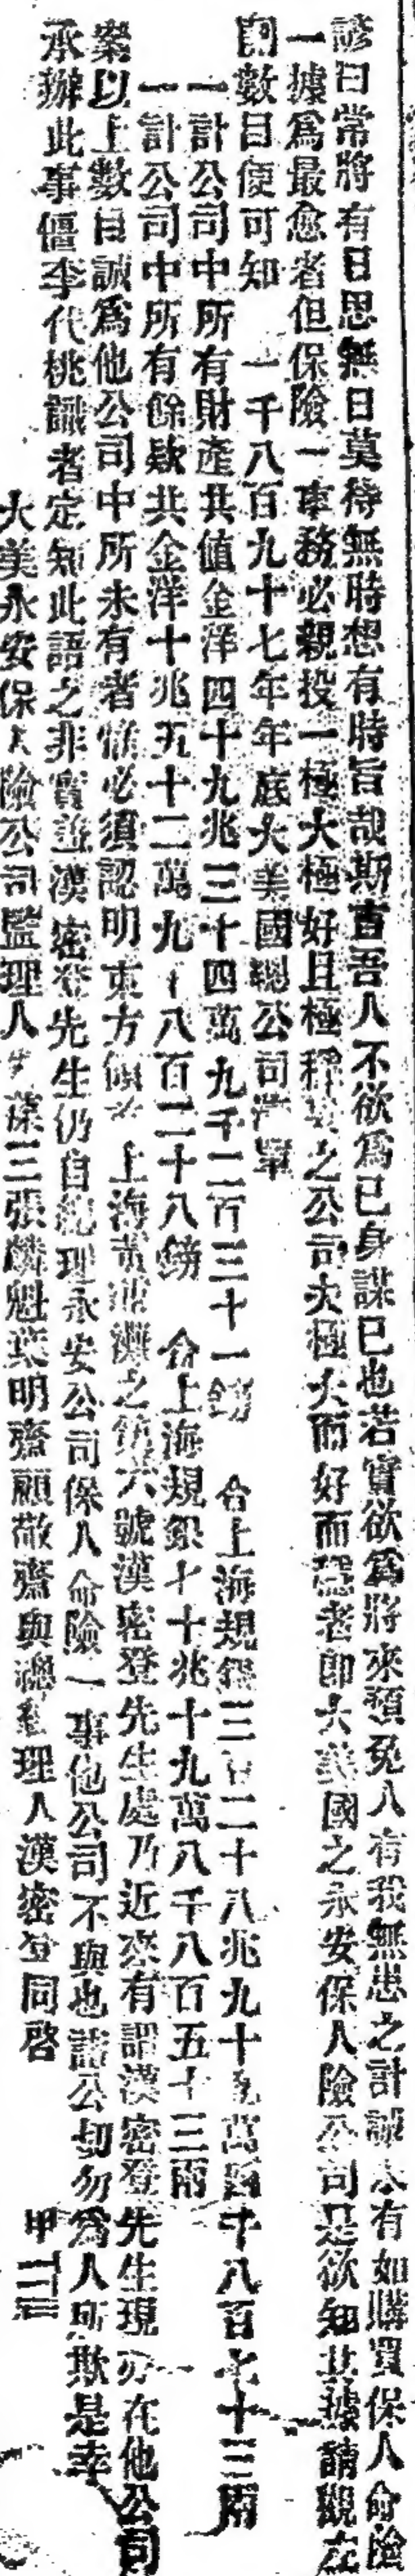 諺曰常將有日思無日莫待無時想有時旨哉斯言吾人不欲爲已身謀已也若實欲爲將來預免人有我無患之計誠未有如購買保人命險
一據爲最愈者但保險一事務必親投一極大極好且極穩之公司夫極大而好而穩者即大美國之永安保人險公司是欲知其據請觀左
開數目便可知 一千八百九十七年年底大美國總公司清單
一計公司中所有財產共值金洋四十九兆三十四萬九千二百三十一鎊 合上海規銀三百二十八兆九十萬千八百七十三兩
一計公司中所有餘欵共金洋十兆五十二萬九千八百二十八鎊 合上海規銀七十兆十九萬八千八百五十三兩
案以上數目誠爲他公司中所未有者惟必須認明東方 上海黃浦灘之第六號漢密登先生處乃近來有謂漢密登先生現亦在他公司
承辦此事僵李代桃識者定知此語之非實蓋漢密登先生仍自總理永安公司保人命險一事他公司不與也諸公切勿爲人所欺是幸
大美永安保人險公司監理人 葉三張麟魁葉明齋顧敬齋與總理人漢密登同啓
甲